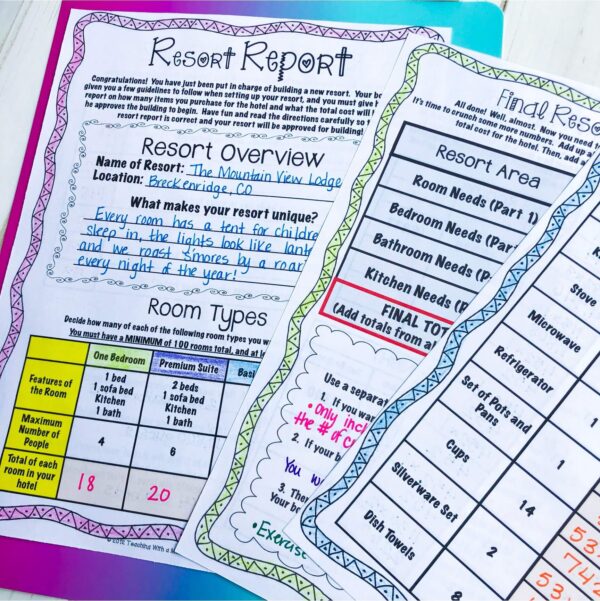 Resort Report
Congratulations! You have just been put in charge of building a new resort. Your
given you a few guidelines to follow when setting up your resort, and you must give
report on how many items you purchase for the hotel and what the total cost will
he approves the building to begin. Have fun and read the directions carefully
resort report is correct and your resort will be approved for building!
Resort Overview
Name of Resort: The Mountain View Lodge
Location: Breckenridge, CO
What makes your resort unique?
Every room has a tent for children
sleep in, the lights look like
and we roast s'mores by a
every night of the year!
Room Types
Decide how many of each of the following room types you
You must have a MINIMUM of 100 rooms total, and at
One Bedroom
Premium Suite
Features of
the Room
1 bed
1 sofa bed
Kitchen
1 bath
2 beds
1 sofa bed
Kitchen
1 bath
Maximum
Number of
People
4
6
Total of each
room in your
hotel
18
20
Final
All done! Well, almost. Now you need
It's time to crunch some more numbers. Add up
total cost for the hotel. Then, add
Resort Area
Room Needs (Part 1)
Bedroom Needs
Bathroom Needs
Kitchen Needs
FINAL
(Add totals from
Use a
1. If you
• Only
the # of
2. If your
You
3.
Your
• Exercise
Stove
Microwave
Refrigerator
Set of Pots and
Pans
Cups
Silverware Set
Dish Towels
1
1
1
14
2
8